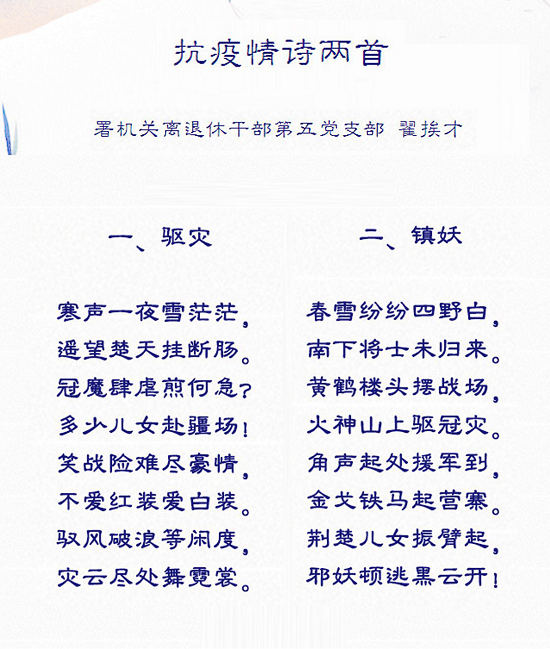 抗疫情诗两首
署机关离退休干部第五党支部 翟挨才
一、驱灾
寒声一夜雪茫茫,
遥望楚天挂断肠。
冠魔肆虐煎何急?
多少儿女赴疆场!
笑战险难尽豪情,
不爱红装爱白装。
驭风破浪等闲度,
灾云尽处舞霓裳。
二、镇妖
春雪纷纷四野白,
南下将士未归来。
黄鹤楼头摆战场,
火神山上驱冠灾。
角声起处援军到,
金戈铁马起营寨。
荆楚儿女振臂起,
邪妖顿逃黑云开!